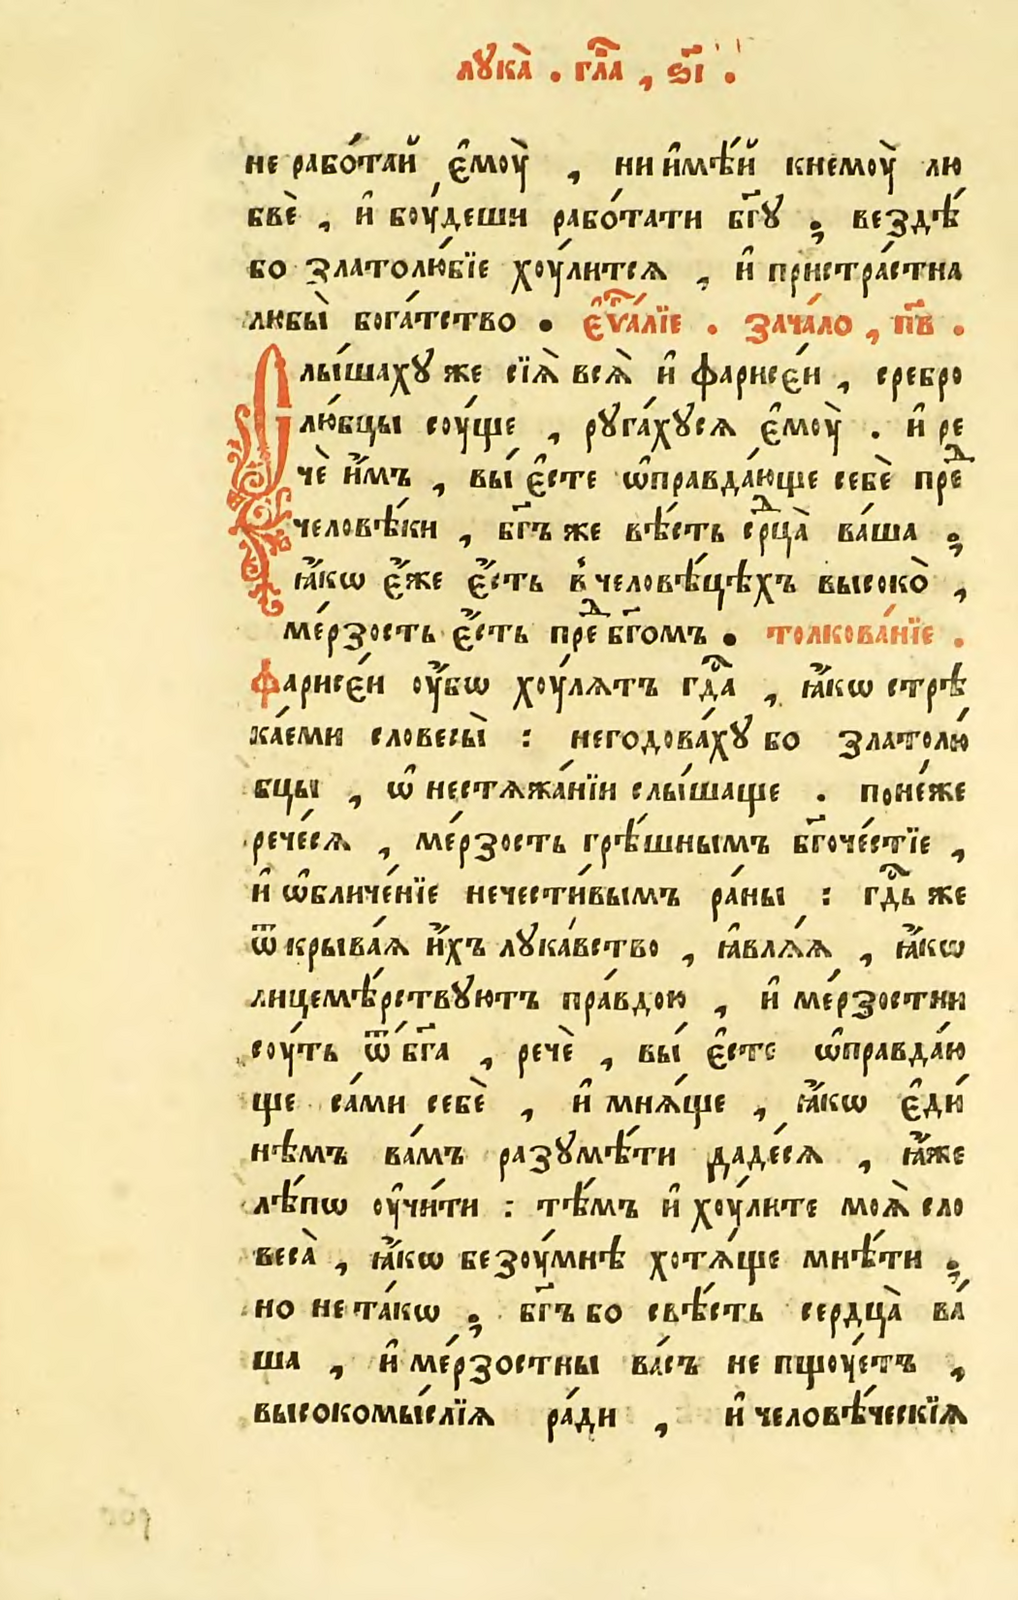 лꙋка̀ . гла҃ , ѕ҃і .
не рабо́тай є҆моу̀ , ни и҆мѣ́й кнемоу̀ лю
бвѐ , и҆ боу́деши рабо́тати бг҃ꙋ ; вездѣ́
бо златолю́бїе хоу́лится , и҆ пристра́стна
любы̀ бога́тство . є҆ѵⷢ҇а́лїе . зача́ло , п҃в .
Слы́шахꙋ же сїѧ̀ всѧ̀ и҆ фарисе́и , сребро
лю́бцы соу́ще , рꙋга́хꙋсѧ є҆моу̀ . и҆ ре
чѐ и҆̀мъ , вы́ є҆сте ѡ҆правда́юще себѐ преⷣ
человѣ́ки , бг҃ъ же вѣ́сть срⷣца̀ ва́ша ;
ꙗ҆́кѡ є҆́же є҆́сть в̾человѣ́цѣхъ высоко̀ ,
ме́рзость є҆́сть преⷣ бг҃омъ . толкова́нїе .
Фарисе́и оу҆́бѡ хоу́лѧтъ гдⷭ҇а , ꙗ҆́кѡ стрѣ
ка́еми словесы̀ : негодова́хꙋ бо златолю́
бцы , ѡ҆ нестѧжа́нїи слы́шаще . поне́же
рече́сѧ , ме́рзость грѣ́шнымъ бг҃оче́стїе ,
и҆ ѡ҆бличе́нїе нечести́вымъ ра́ны : гдⷭ҇ь же
ѿкрыва́ѧ и҆́хъ лꙋка́вство , ꙗ҆влѧ́ѧ , ꙗ҆́кѡ
лицемѣ́рствꙋютъ пра́вдою , и҆ ме́рзостни
соу́ть ѿ бг҃а , речѐ , вы́ є҆сте ѡ҆правда́ю
ще са́ми себѐ , и҆ мнѧ́ще , ꙗ҆́кѡ є҆ди́
нѣмъ ва́мъ разꙋмѣ́ти даде́сѧ , ꙗ҆́же
лѣ́пѡ оу҆чи́ти : тѣ́мъ и҆ хоу́лите моѧ̀ сло
веса̀ , ꙗ҆́кѡ безоу́мнѣ хотѧ́ще мнѣ́ти ;
но не та́кѡ ; бг҃ъ бо свѣ́сть сердца̀ ва́
ша , и҆ ме́рзостны ва́съ не пщоуе́тъ ,
высокомы́слїѧ ра́ди , и҆ человѣ́ческїѧ